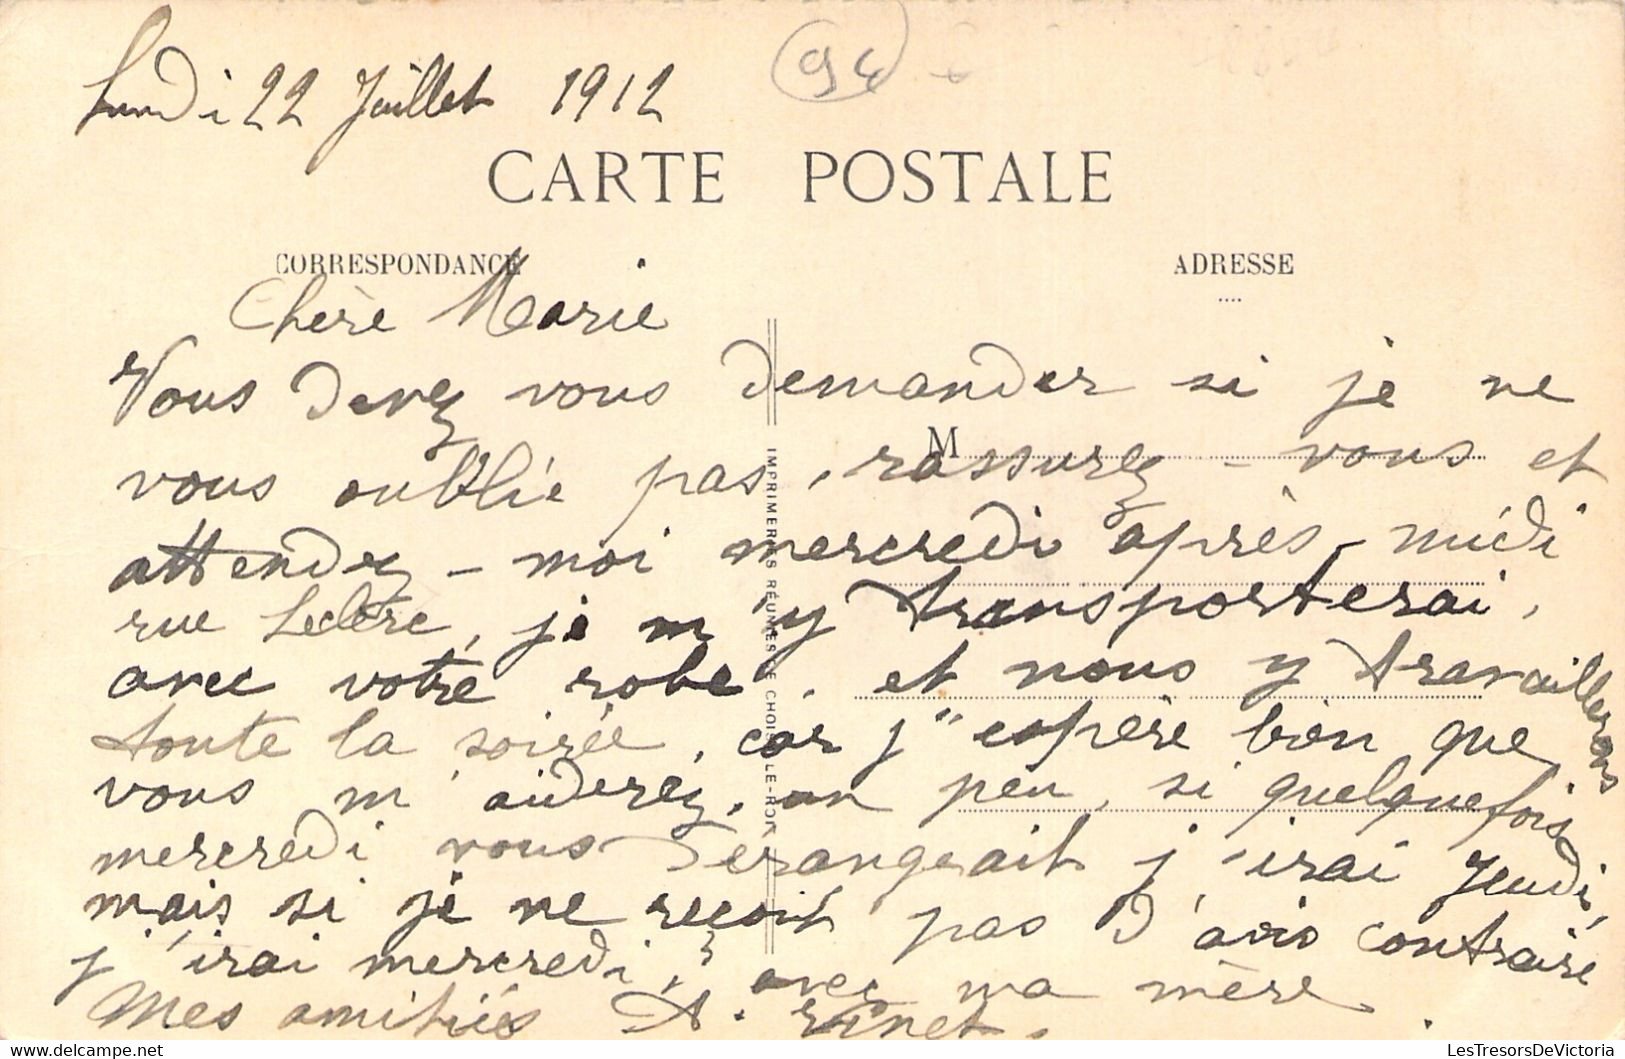 94
Lundi 22 Juillet 1912
CARTE POSTALE
CORRESPONDANCE
ADRESSE
Chère Marie
Vous devez vous demander si je ne
M
vous oublie pas, rassurez-vous et
attendez-moi mercredi après-midi
rue Leclerc, je m'y transporterai,
avec votre robe, et nous y travaillerons
toute la soirée, car j'espère bien que
vous m'aiderez, un peu, si quelquefois
mercredi vous dérangeait j'irai Jeudi,
mais si je ne reçoit pas d'avis contraire
j'irai mercredi, avec ma mère.
Mes amitiés A.
IMPRIMERIES RÉUNIES DE CHOISY-LE-ROI
LesTresorsDeVictoria